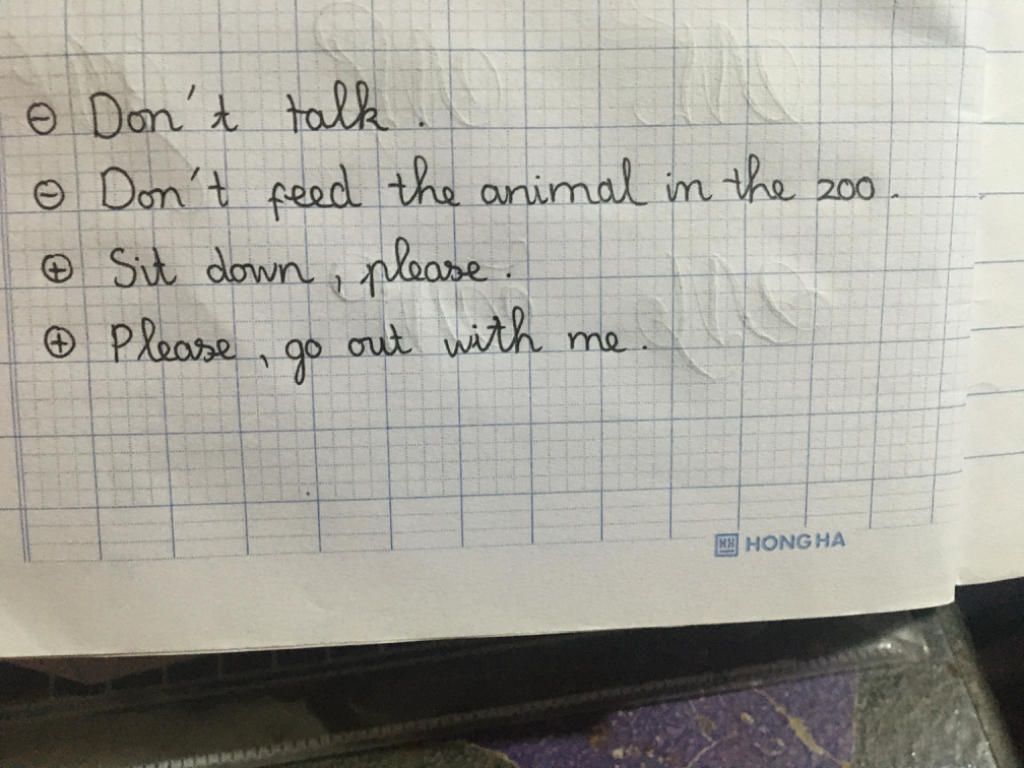 ⊖ Don't talk.
⊖ Don't feed the animal in the zoo.
⊕ Sit down, please.
⊕ Please, go out with me.
HH HONG HA